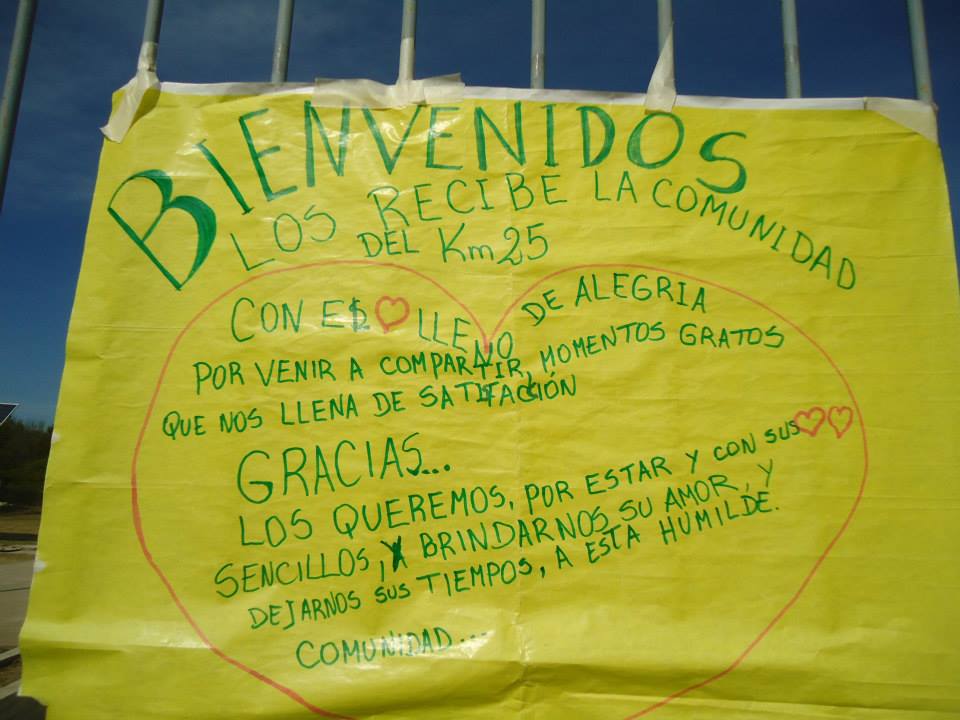 BIENVENIDOS
LOS RECIBE LA COMUNIDAD
DEL Km 25
CON E$ ♡ LLENO DE ALEGRIA
POR VENIR A COMPARTIR, MOMENTOS GRATOS
QUE NOS LLENA DE SATIFACCIÓN
GRACIAS...
LOS QUEREMOS, POR ESTAR Y CON SUS ♡♡
SENCILLOS, BRINDARNOS SU AMOR, Y
DEJARNOS SUS TIEMPOS, A ESTA HUMILDE.
COMUNIDAD...